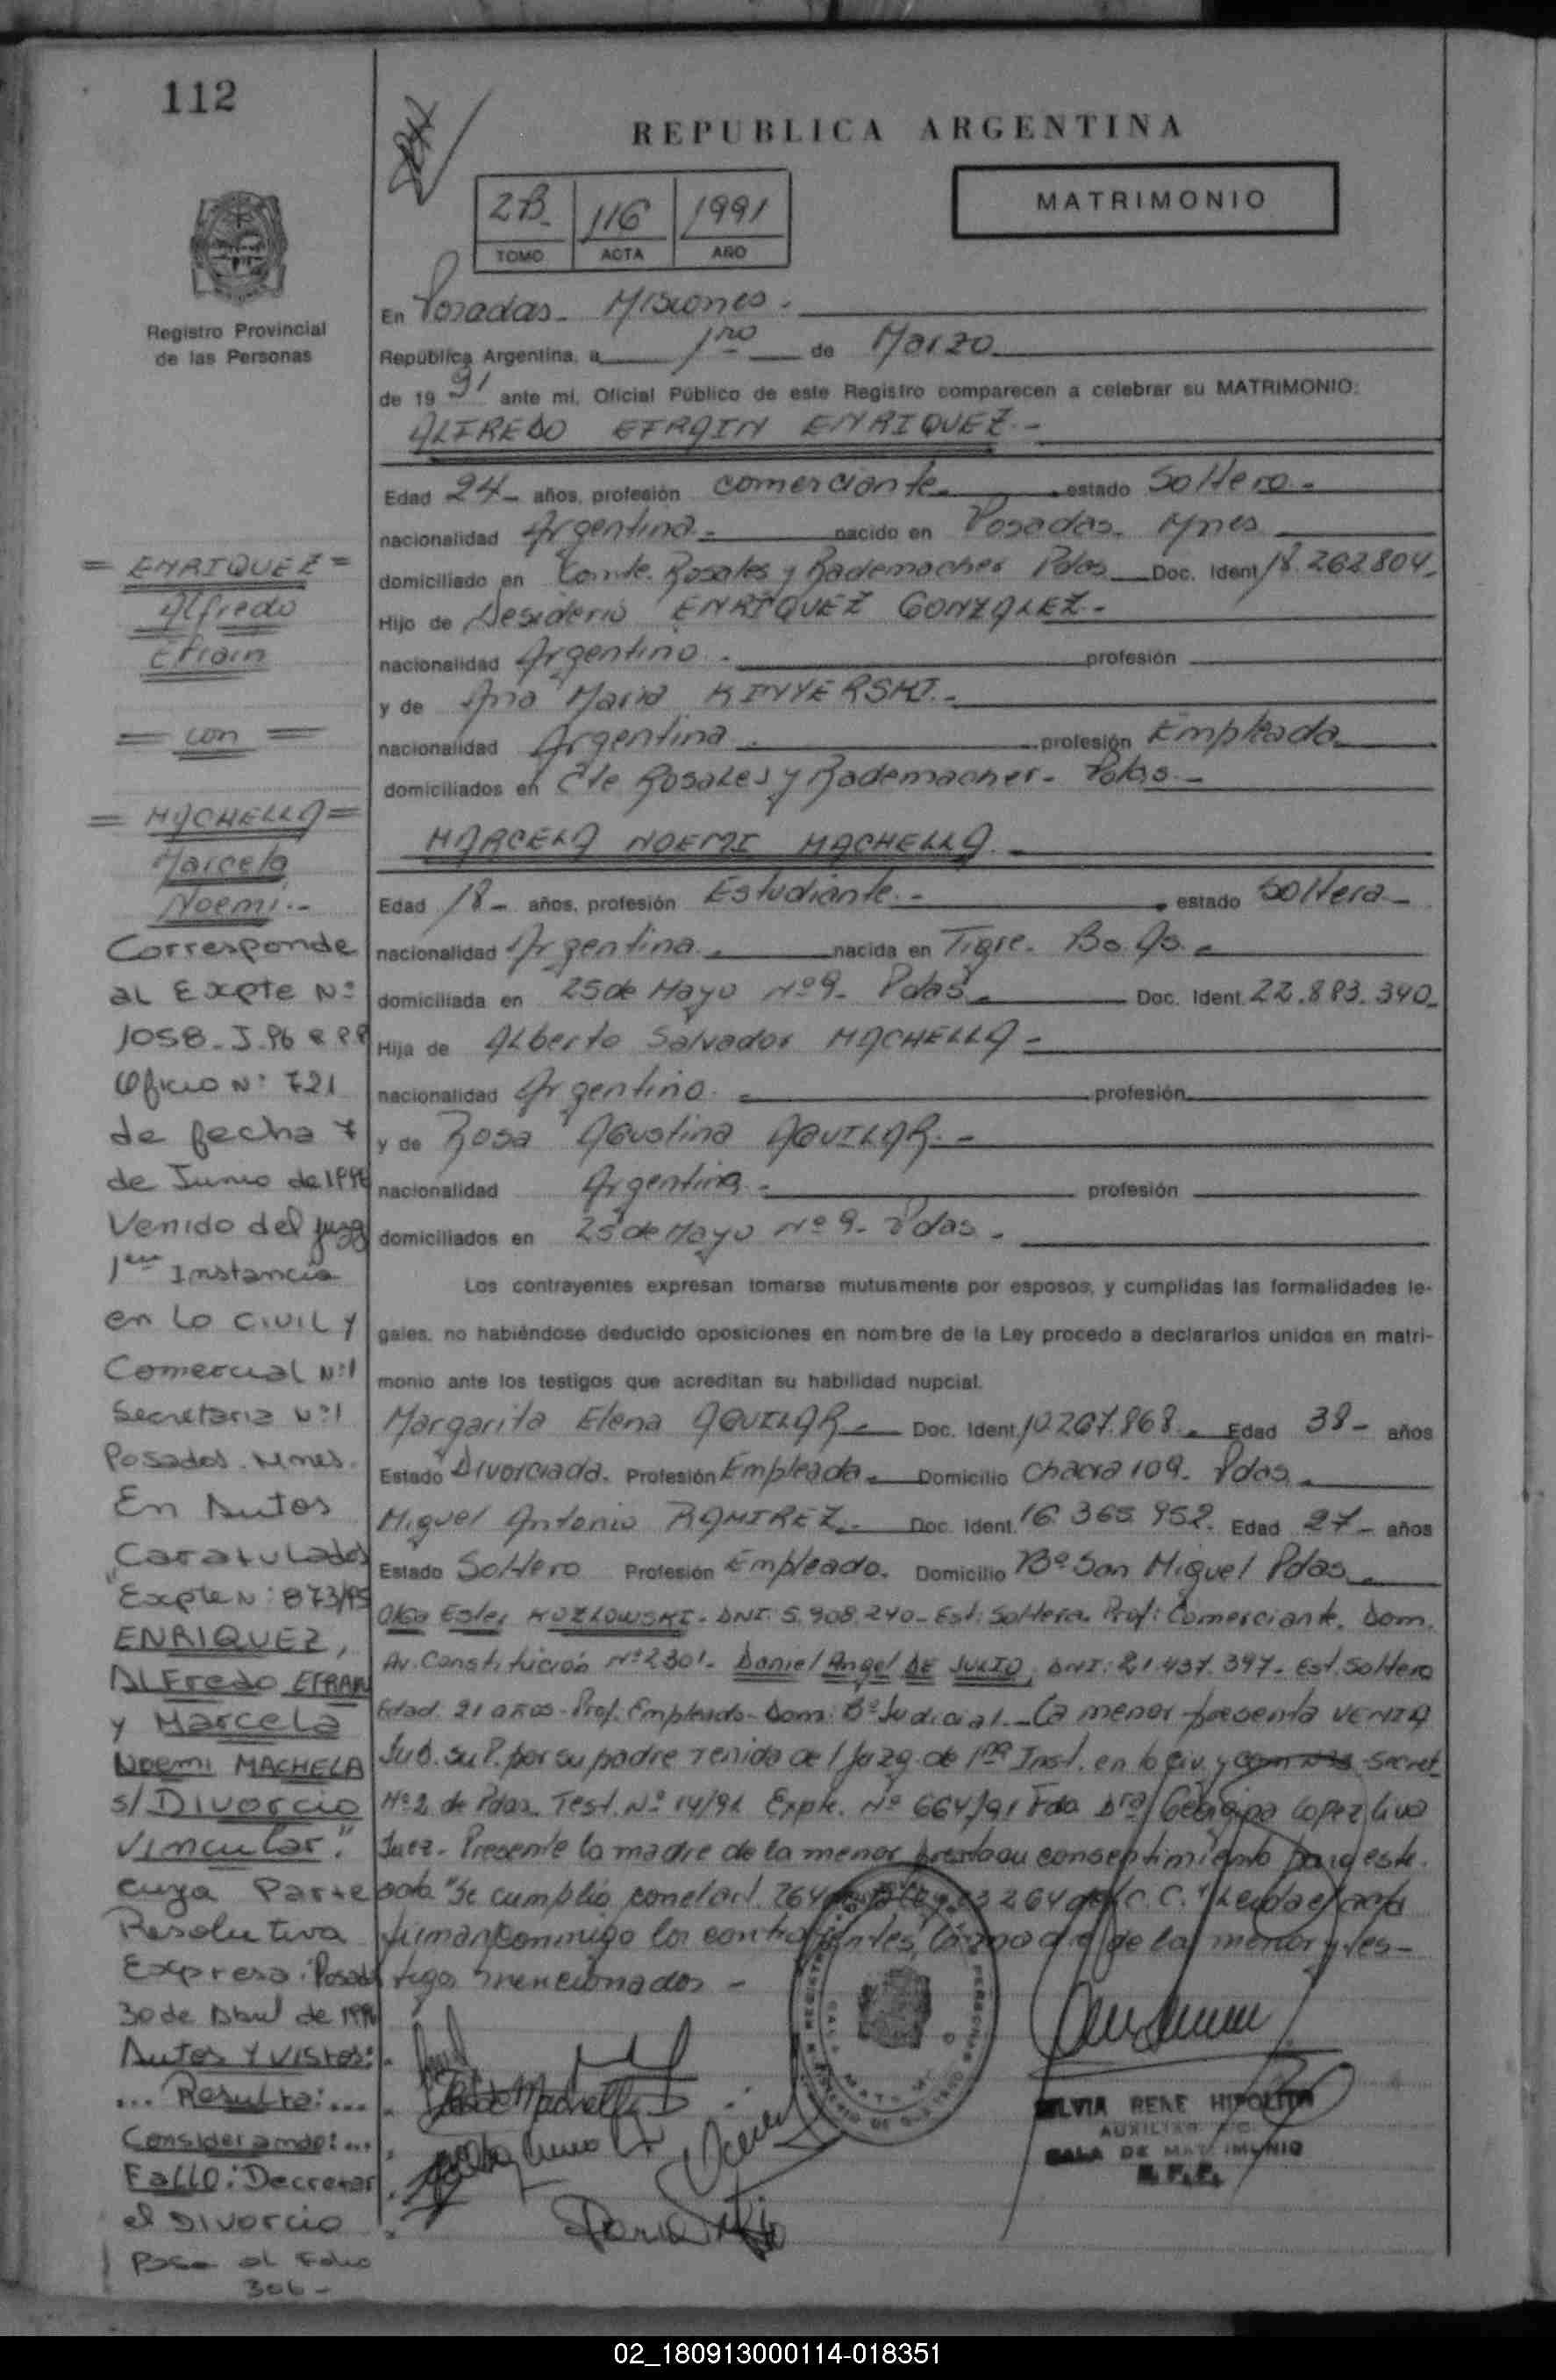 112
REPUBLICA ARGENTINA
MATRIMONIO
2B 116 1991
TOMO ACTA AÑO
Registro Provincial
de las Personas
En Posadas - Misiones.
República Argentina, a 1ro de Marzo
de 1991 ante mí, Oficial Público de este Registro comparecen a celebrar su MATRIMONIO:
ALFREDO EFRAIN ENRIQUEZ.-
Edad 24- años, profesión comerciante. estado Soltero.-
nacionalidad Argentina.- nacido en Posadas. Mnes
domiciliado en Comte. Rosales y Rademacher Pdas Doc. Ident. 18.262804-
Hijo de Desiderio ENRIQUEZ GONZALEZ.-
nacionalidad Argentino.- profesión
y de Ana Maria KINYERSKI.-
nacionalidad Argentina. profesión Empleada
domiciliados en Cte Rosales y Rademacher- Pdas.-
MARCELA NOEMI MACHELLA.
Edad 18- años, profesión Estudiante.- estado Soltera-
nacionalidad Argentina. nacida en Tigre. Bs. As.
domiciliada en 25 de Mayo Nº 9- Pdas. Doc. Ident. 22.883.340-
Hija de Alberto Salvador MACHELLA-
nacionalidad Argentino. profesión
y de Rosa Agustina AGUILAR.-
nacionalidad Argentina.- profesión
domiciliados en 25 de Mayo Nº 9- Pdas.
Los contrayentes expresan tomarse mutuamente por esposos, y cumplidas las formalidades le-
gales, no habiéndose deducido oposiciones en nombre de la Ley procedo a declararlos unidos en matri-
monio ante los testigos que acreditan su habilidad nupcial.
Margarita Elena AGUILAR- Doc. Ident. 10.267.868. Edad 38- años
Estado Divorciada. Profesión Empleada. Domicilio Chacra 109- Pdas.
Miguel Antonio RAMIREZ. Doc. Ident. 16.365.952. Edad 27- años
Estado Soltero Profesión Empleado. Domicilio Bº San Miguel Pdas.
Olga Ester KOZLOWSKI- DNI: 5.908.240- Est: Soltera. Prof: Comerciante. Dom.
Av. Constitución Nº 2301- Daniel Angel DE JULIO, DNI: 21.437.397- Est. Soltero
Edad. 21 años- Prof. Empleado- Dom: Bº Judicial.- La menor presenta VENIA
Jud. su P. por su padre venida del Juzg. de 1ra Inst. en lo Civ. y Secret.
Nº 2 de Pdas. Test. Nº 14/91 Expte. Nº 664/91 Fdo. Dra Lopez
Juez- Presente la madre de la menor presta su consentimiento para este
acto. "Se cumplio con el art. 264 C.C." Leida el acta
firman conmigo los contrayentes, la madre de la menor y tes-
tigos mencionados -
SILVIA RENE HIPOLITA
AUXILIAR
SALA DE MATRIMONIO
= ENRIQUEZ =
Alfredo
Efrain
= con =
= MACHELLA =
Marcela
Noemi.-
Corresponde
al Expte Nº
1058-J-96
Oficio Nº 721
de fecha 7
de Junio de 1996
Venido del Juzg
1era Instancia
en Lo Civil y
Comercial Nº1
Secretaria Nº1
Posadas. Mnes.
En Autos
Caratulados
"Expte Nº 873/95
ENRIQUEZ,
Alfredo EFRAIN
y Marcela
Noemi MACHELA
s/ Divorcio
Vincular."
cuya Parte
Resolutiva
Expresa: "Posadas
30 de Abril de 1996
Autos y Vistos:
... Resulta: ...
Considerando: ...
Fallo: Decretar
el Divorcio
Pase al Folio
306-
02_180913000114-018351